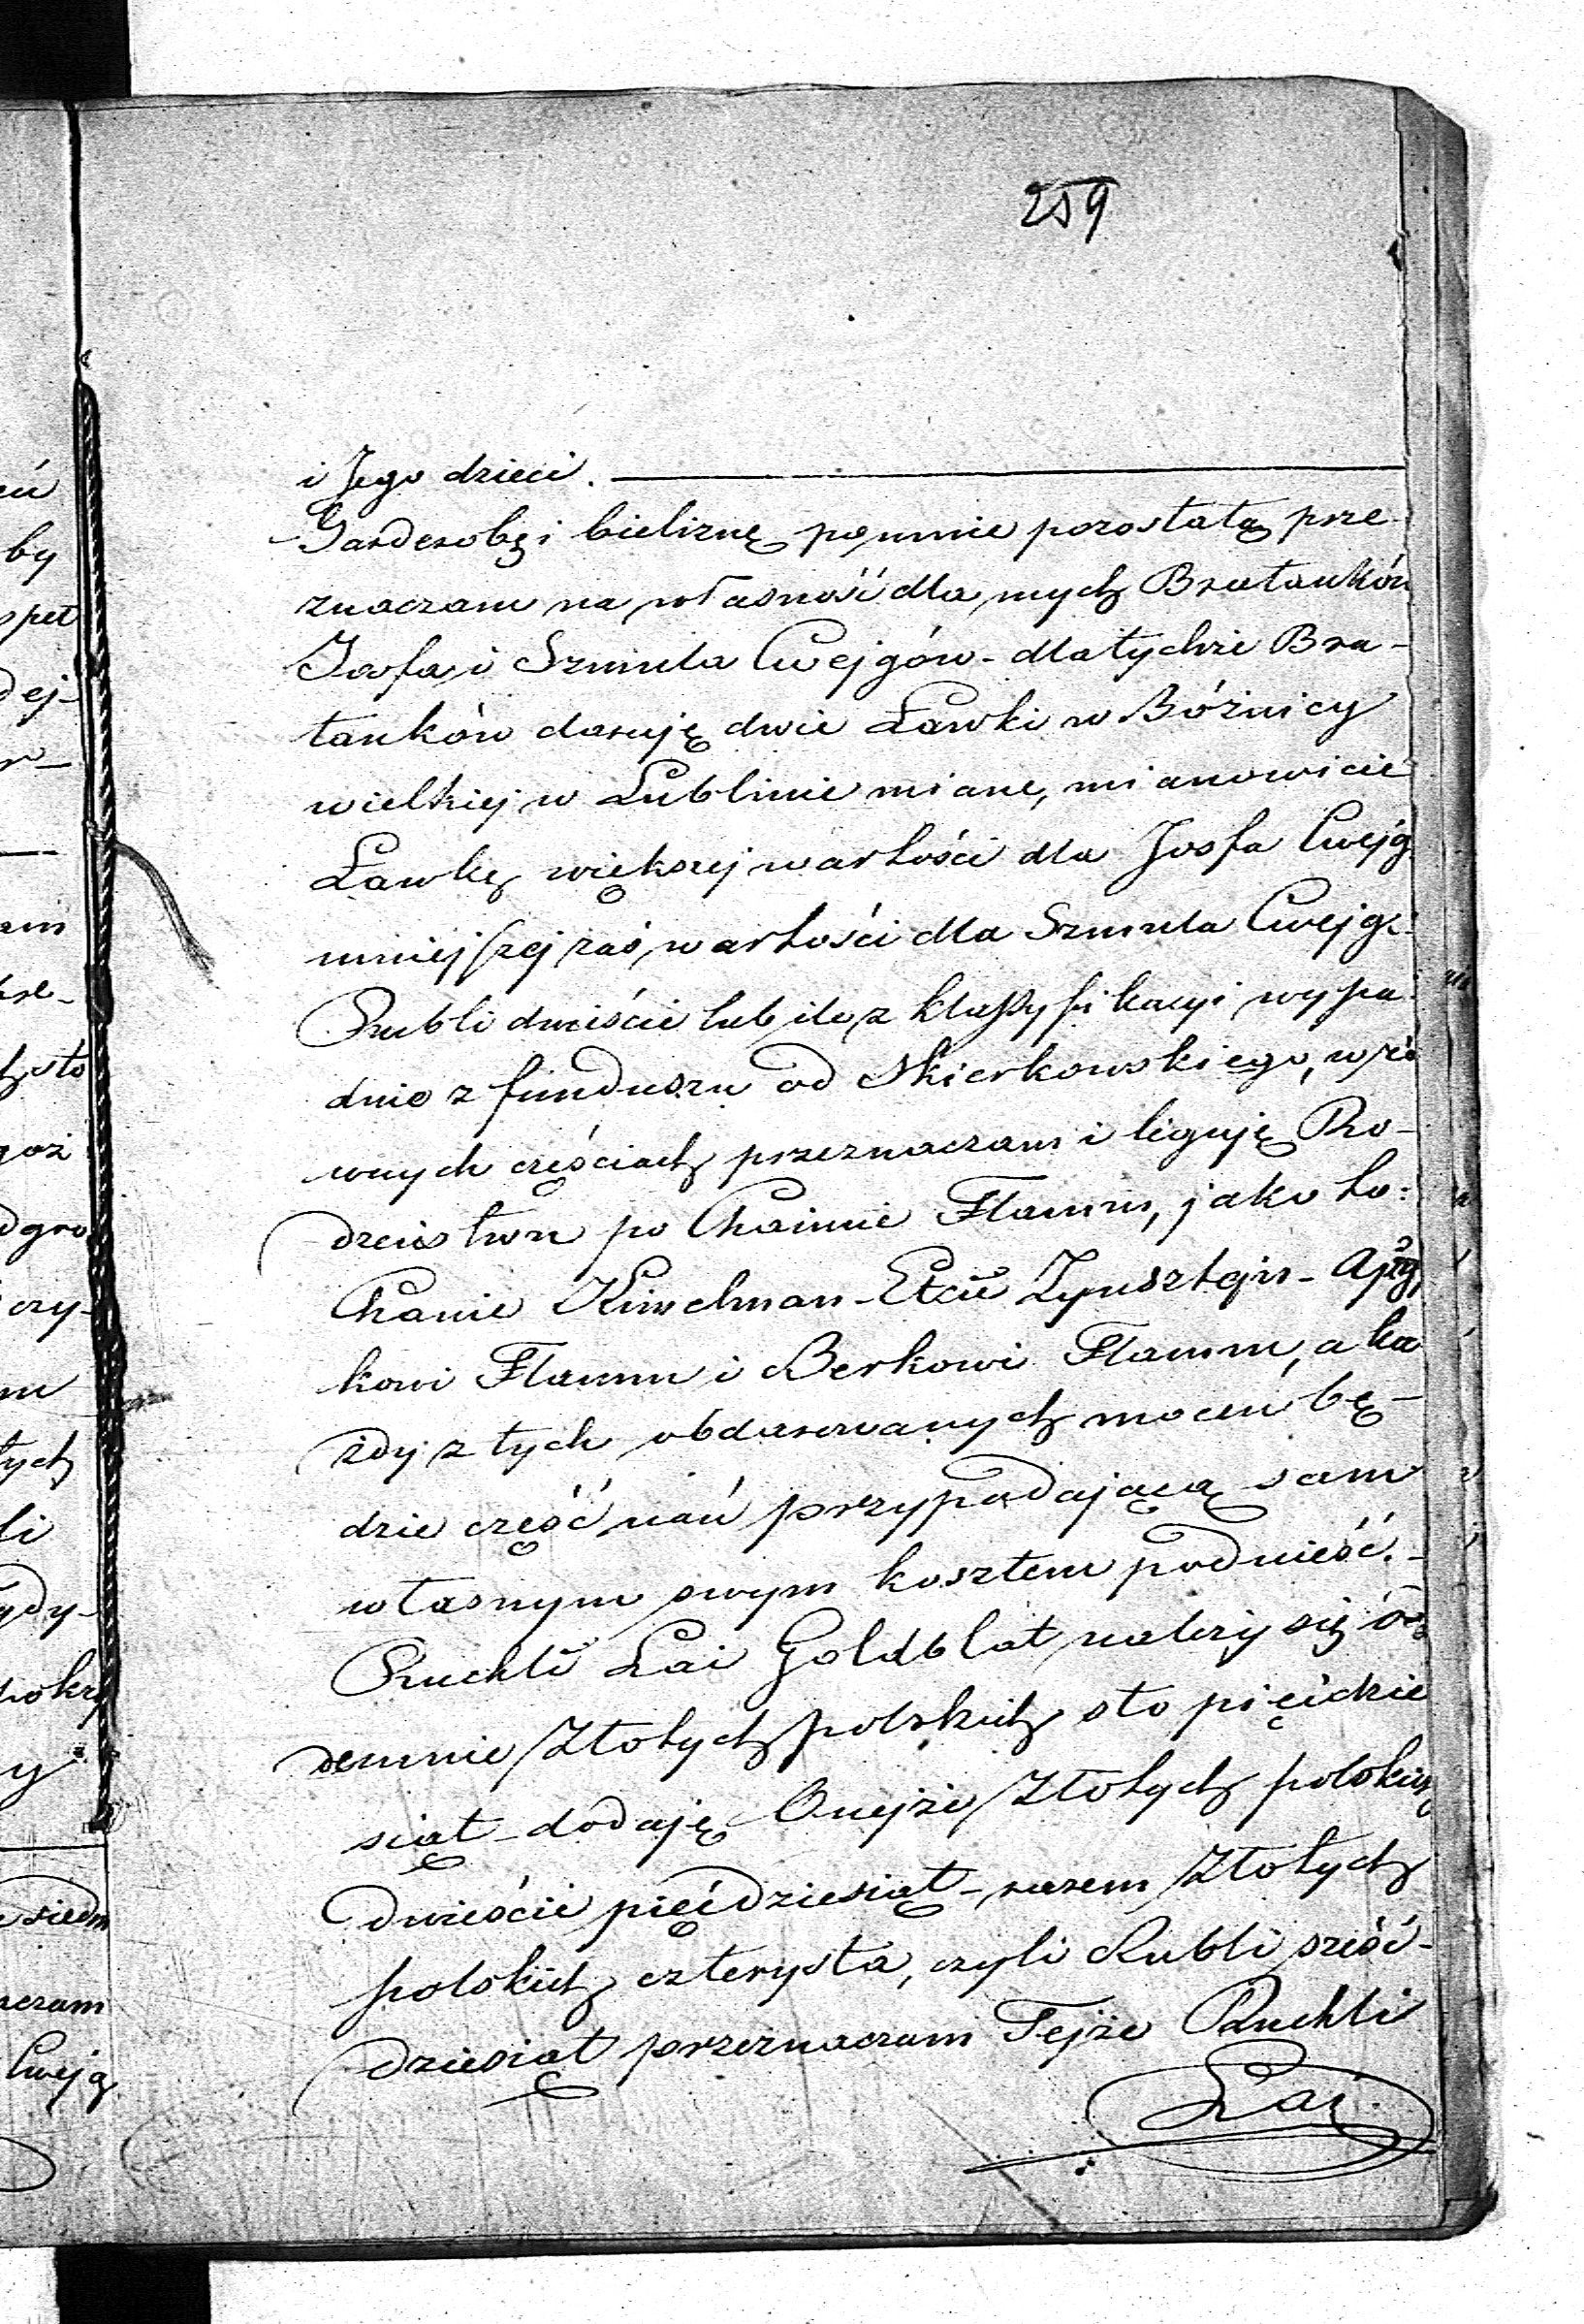 259
i Jego dzieci.
Garderobę i bieliznę po mnie pozostałą prze-
znaczam na własność dla mych Bratanków
Josfa i Szmula Cwejgów - dla tychże Bra-
tanków daruję dwie Ławki w Bóżnicy
wielkiej w Lublinie miane, mianowicie
Ławkę większej wartości dla Josfa Cwejg
mniejszej zaś wartości dla Szmula Cwejga.
Rubli dwieście lub ile z klassyfikacyi wypa-
dnie z funduszu od Skierkowskiego, w ró
wnych częściach przeznaczam i leguję Ro-
dzeństwu po Chaimie Flamm, jako to:
Chanie Etcie Zynsztejn - Ajzy
kowi Flamm i Berkowi Flamm, a ka
żdy z tych obdarowanych mocen bę-
dzie część nań przypadającą sam
własnym swym kosztem podnieść. -
Ruchli Łai Goldblat należy się o
demnie Złotych polskich sto pięćdzie
siąt - dodaję Onejże Złotych polskich
dwieście pięćdziesiąt - razem Złotych
polskich czterysta, czyli Rubli sześć-
dziesiąt przeznaczam Tejże Ruchli
Łai